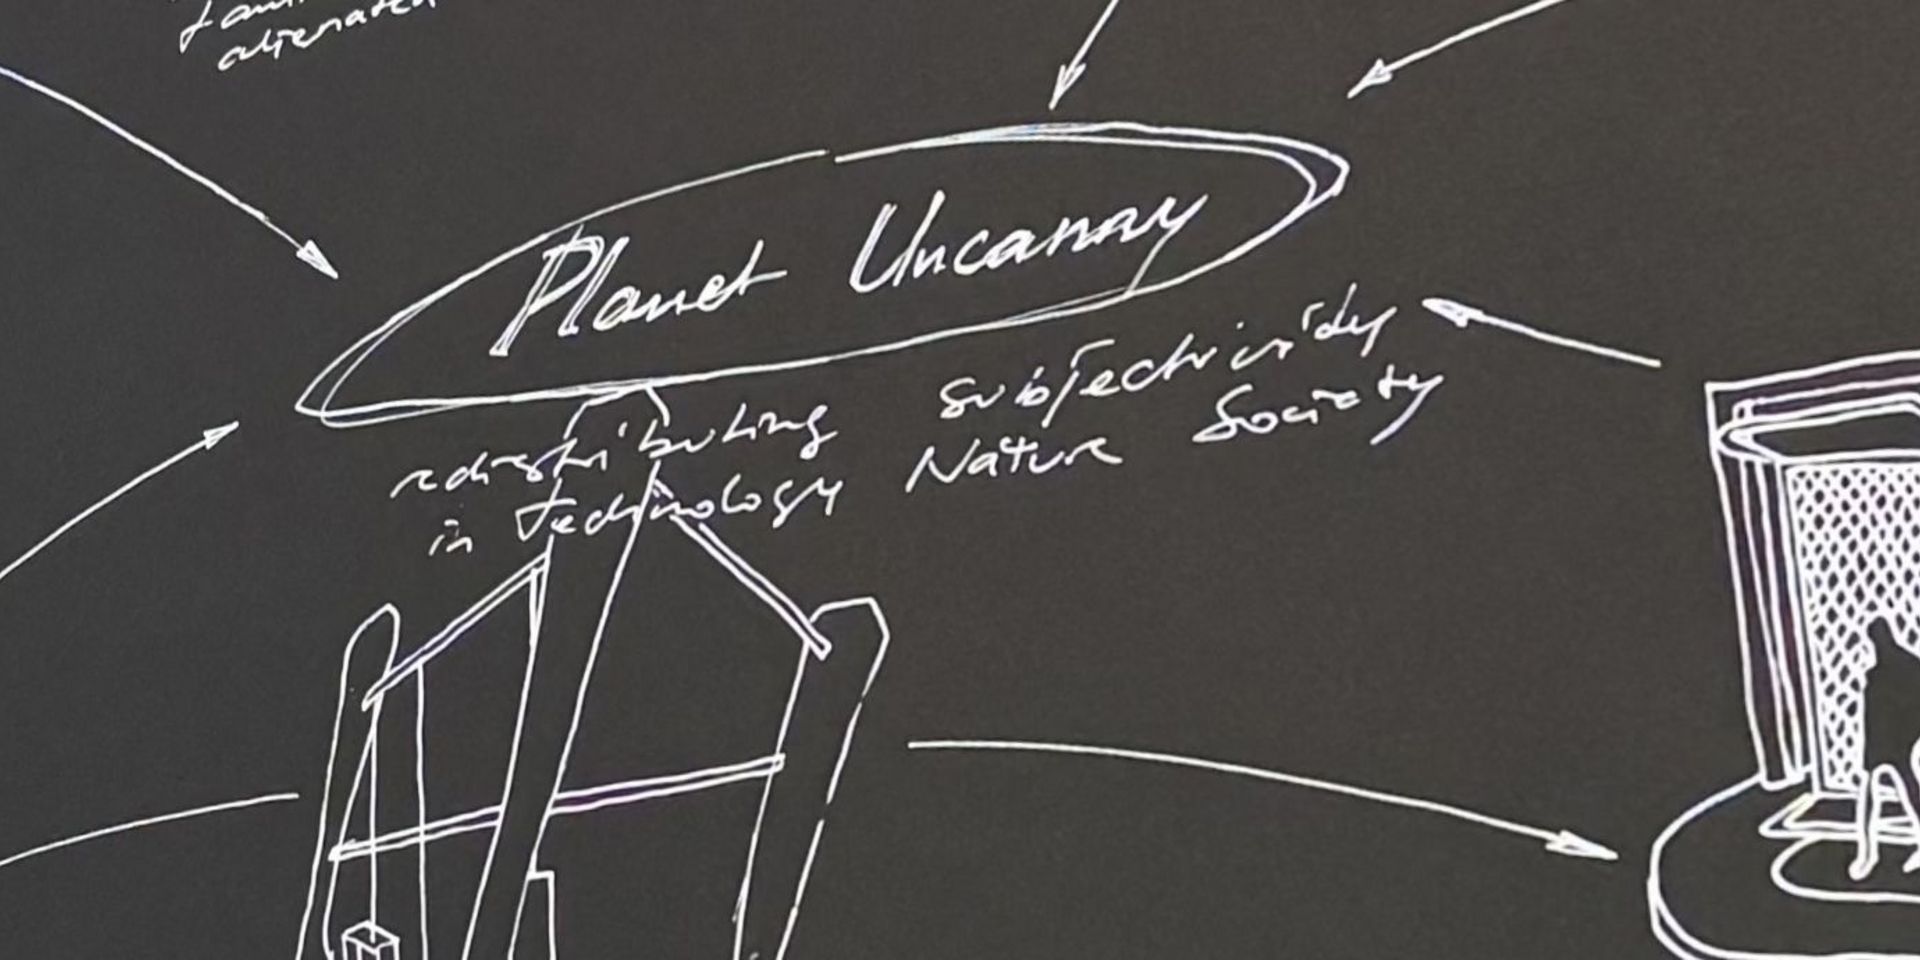 alienated
Planet Uncanny
redistributing subjectivity
in technology Nature Society